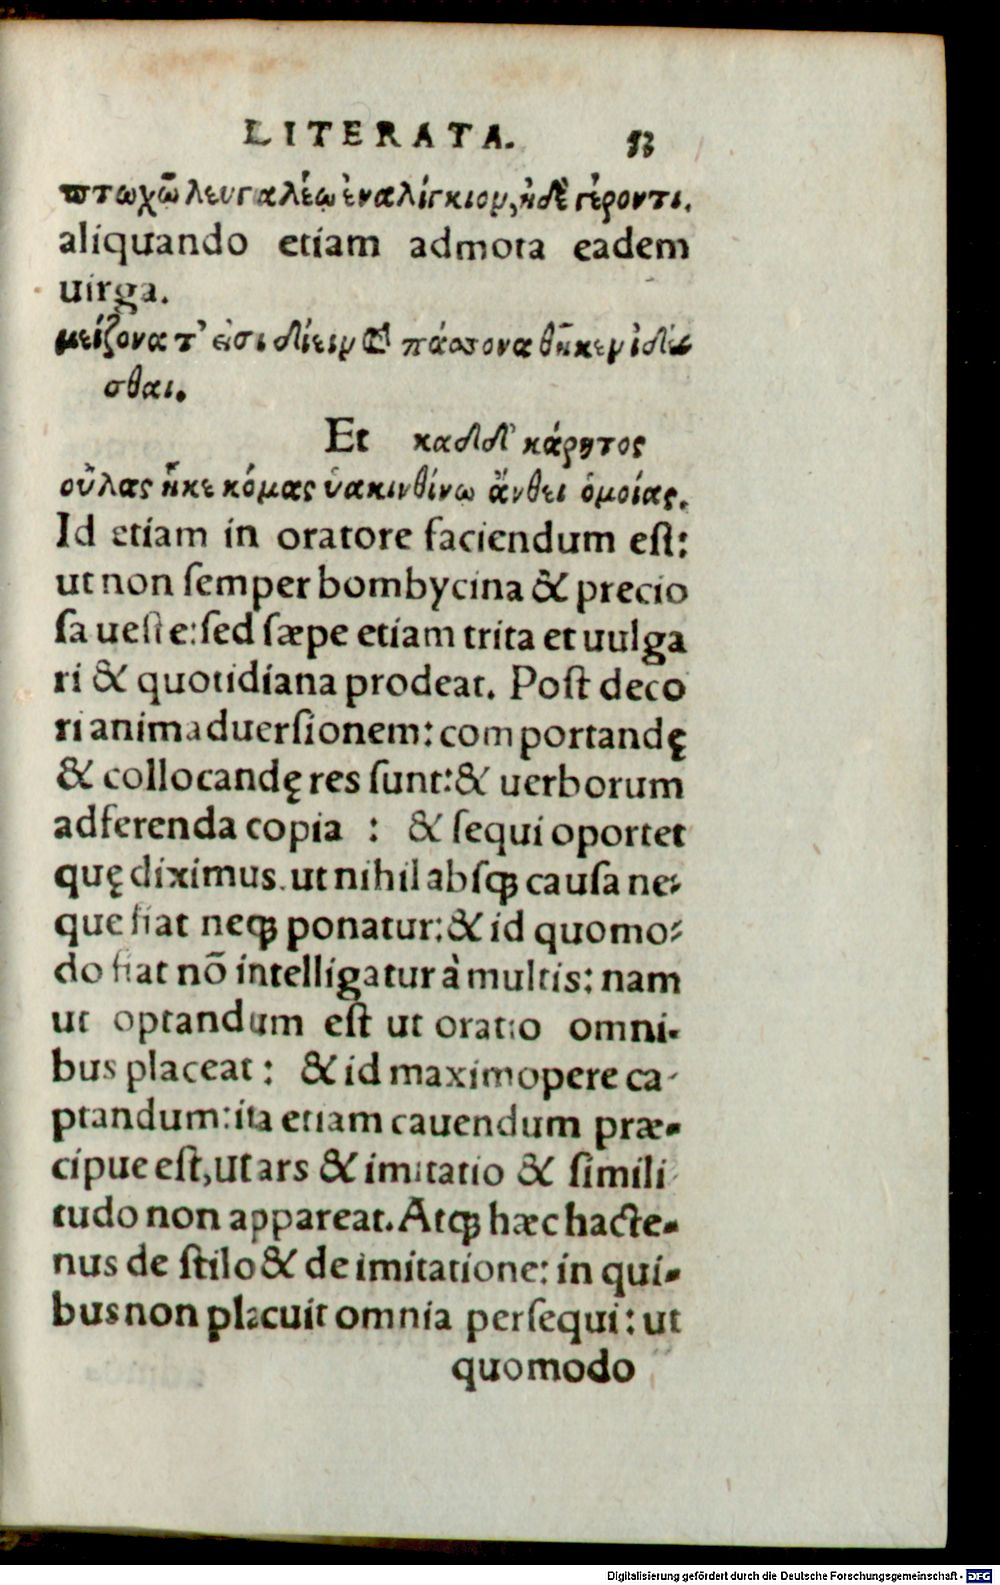 LITERATA. 53
πτωχῷ λευγαλέῳ ἐναλίγκιον, ἠδὲ γέροντι.
aliquando etiam admota eadem
uirga.
μείζονα τ' εἰσιδέειν καὶ πάσσονα θῆκεν ἰδέ-
σθαι.
Et καδδ' κάρητος
οὔλας ἧκε κόμας ὑακινθίνῳ ἄνθει ὁμοίας.
Id etiam in oratore faciendum eſt:
ut non ſemper bombycina & precio
ſa ueſte: ſed ſæpe etiam trita et uulga
ri & quotidiana prodeat. Poſt deco
ri animaduerſionem: comportandę
& collocandę res ſunt: & uerborum
adferenda copia : & ſequi oportet
quę diximus. ut nihil abſqꝫ cauſa ne-
que fiat neqꝫ ponatur: & id quomo-
do fiat nõ intelligatur à multis: nam
ut optandum eſt ut oratio omni-
bus placeat : & id maximopere ca-
ptandum: ita etiam cauendum præ-
cipue eſt, ut ars & imitatio & ſimili
tudo non appareat. Atqꝫ hæc hacte-
nus de ſtilo & de imitatione: in qui-
bus non placuit omnia perſequi: ut
quomodo
Digitalisierung gefördert durch die Deutsche Forschungsgemeinschaft - DFG